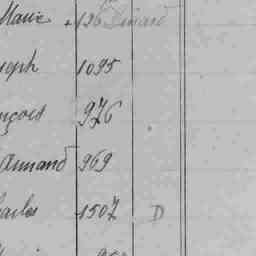 Marie 126 Dinard
seph 1095
nçois 976
Armand 969
arles 1507 D